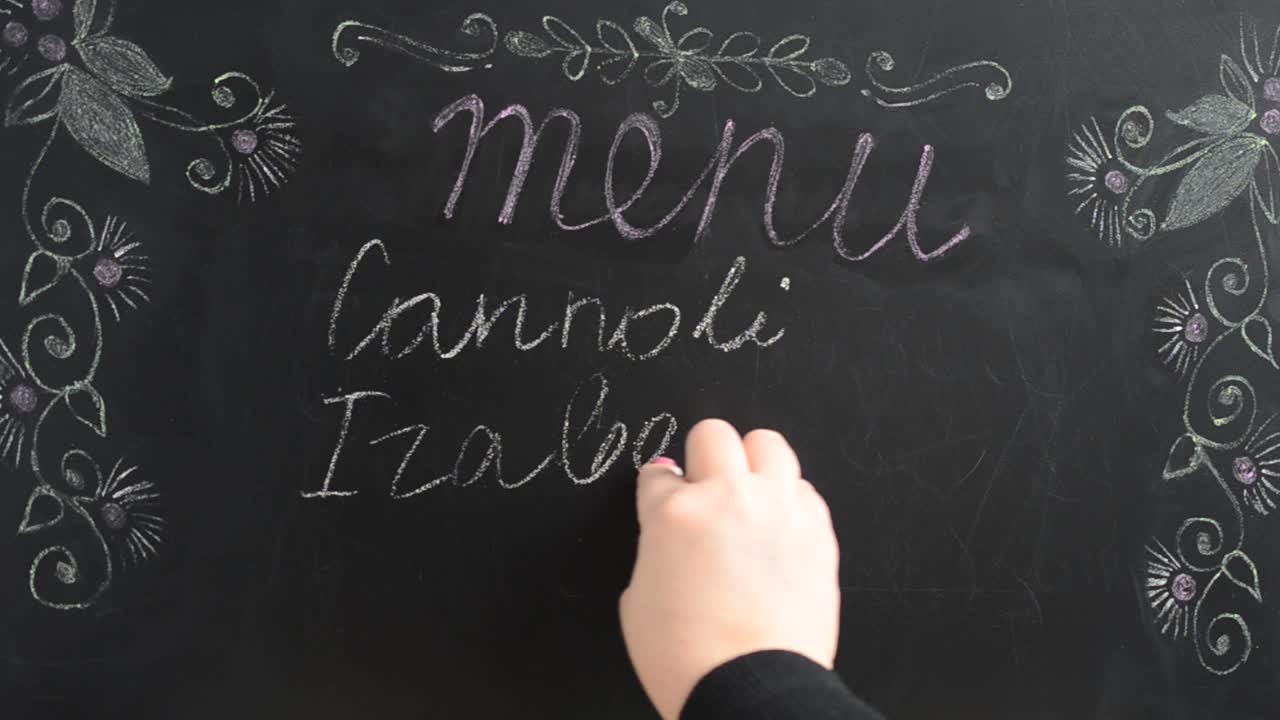 menu
Cannoli
Izabe